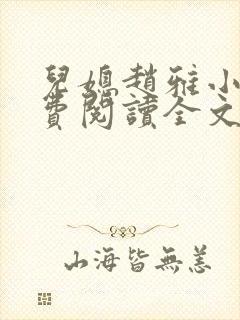 兒媳趙雅小
費閱讀全文
山海皆無恙